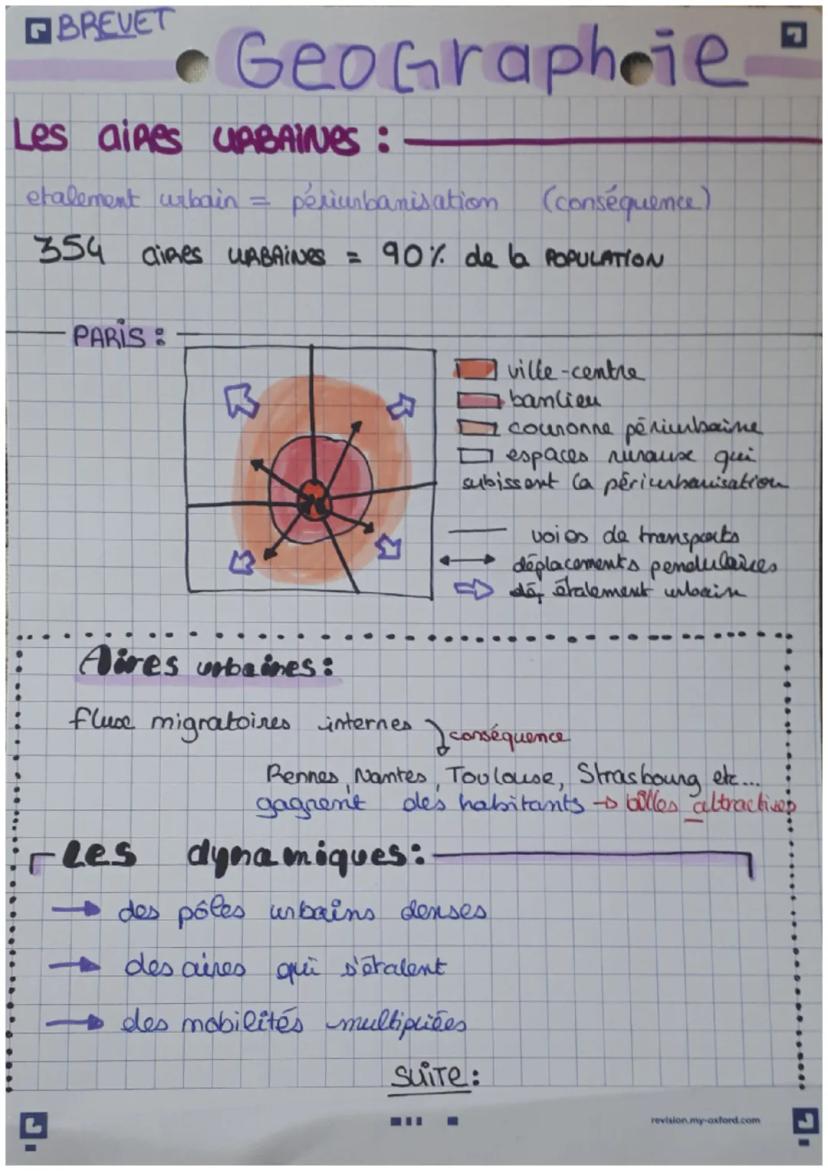 BREVET
GeoGraphie
Les aires URBAINES :
etalement urbain = périurbanisation (conséquence)
354 aires URBAINES = 90% de la POPULATION
PARIS :
ville-centre
banlieu
couronne périurbaine
espaces ruraux qui
subissent la périurbanisation
voies de transports
déplacements pendulaires
étalement urbain
Aires urbaines :
flux migratoires internes
conséquence
Rennes, Nantes, Toulouse, Strasbourg etc...
gagnent des habitants → villes attractives
Les dynamiques :
→ des pôles urbains denses
→ des aires qui s'étalent
→ des mobilités multipliées
SUITE :
revision.my-oxford.com